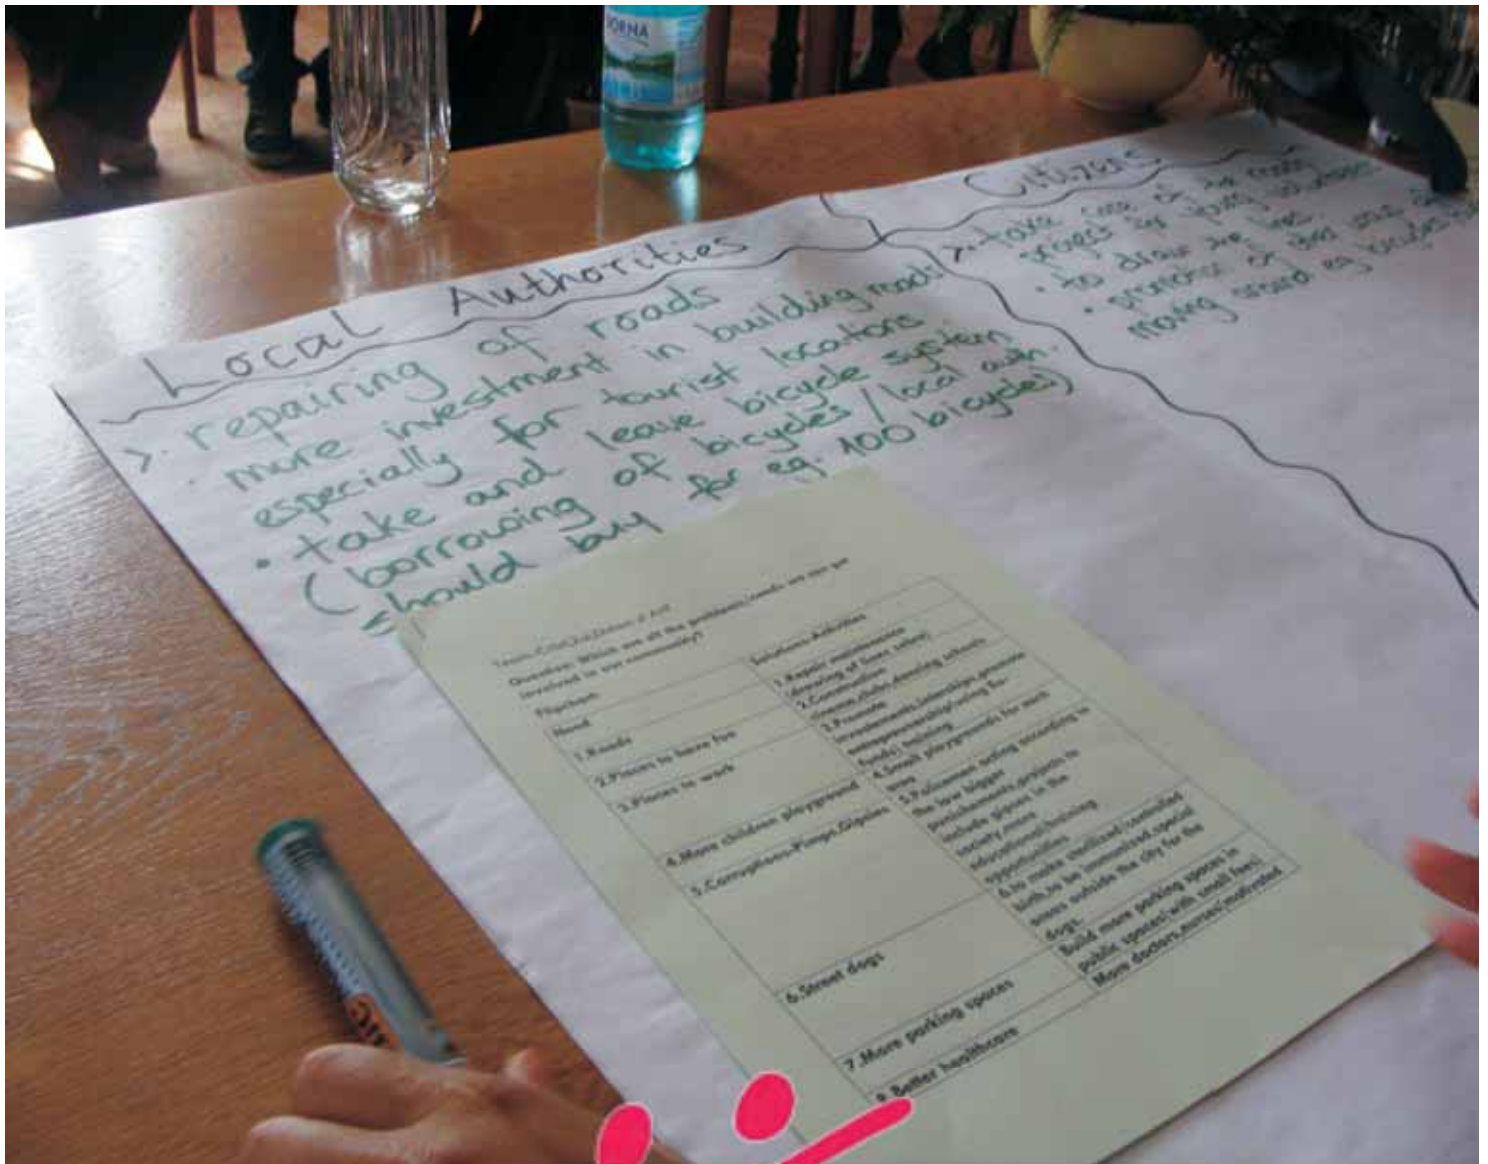 DORNA
Local Authorities
>. repairing of roads
more investment in building roads
especially for tourist locations
• take and leave bicycle system
(borrowing of bicycles / local auth.
should buy for eg. 100 bicycles)
Citizens
>. take care of the roads
project for young volunteers
to draw the lines.
• promotion of
moving around eg bicycles
Question: Which are all the problems/needs
involved in our community?
Flipchart:
Need
Solutions-Activities
1.Roads
1.Repair maintenance
(drawing of lines
2.Places to have fun
2.Construction
cinema,clubs,dancing schools
3.Places to work
3.Promote
investements,interships,promote
entepreneurship(using fu-
funds) training
4.More children playground
4.Small playgrounds for each
area
5.Corruptions-Pimps,Gipsies
5.Policemen acting according to
the law bigger
punishements,projects to
include gipsies in the
society,more
educational/training
opportunities
6.Street dogs
6.to make sterilized/controlled
birth,to be immunized,special
areas outside the city for the
dogs.
7.More parking spaces
Build more parking spaces in
public spaces(with small fees)
Better healthcare
More doctors,nurses(motivated